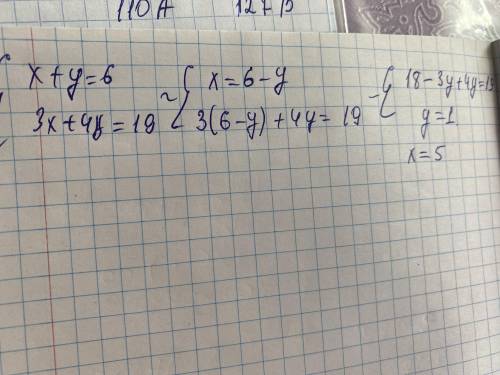 110 A 127 B
{ x+y=6
3x+4y=19
~ { x=6-y
3(6-y)+4y=19
~ { 18-3y+4y=19
y=1
x=5